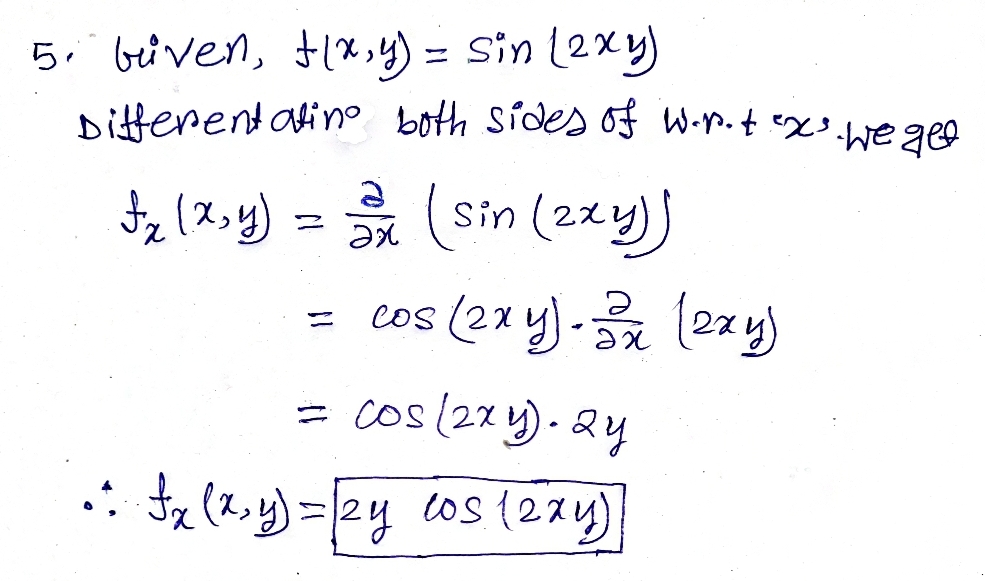 5. Given, f(x,y) = sin (2xy)
Differentating both sides of w.r.t 'x' we get
fₓ (x,y) = ∂/∂x (sin (2xy))
= cos (2xy) · ∂/∂x (2xy)
= cos (2xy) · 2y
∴ fₓ (x,y) = 2y cos (2xy)